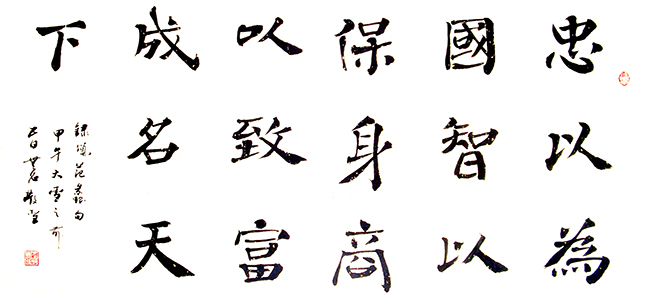 忠以為
國智以
保身商
以致富
成名天
下
甲午大雪之前